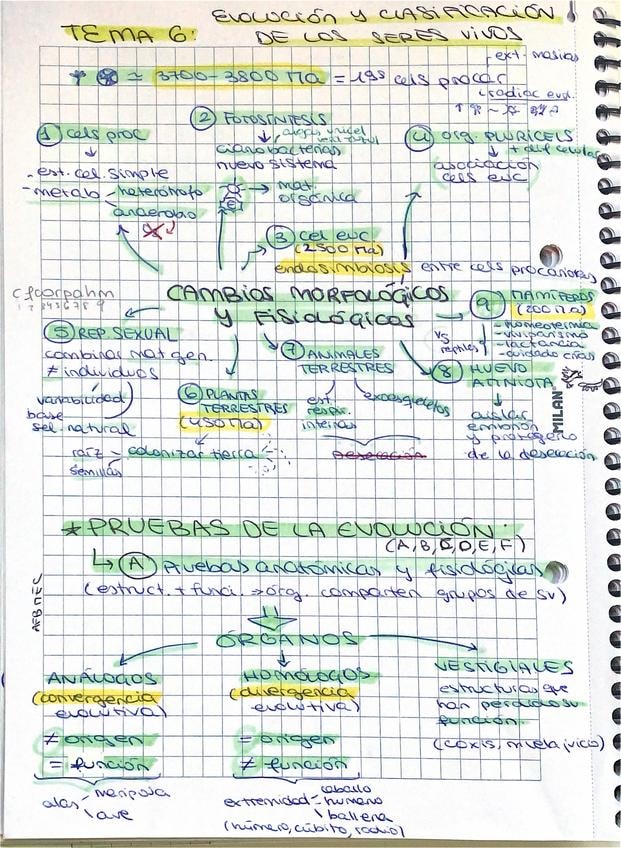 EVOLUCIÓN Y CLASIFICACIÓN
TEMA 6: DE LOS SERES VIVOS
≃ 3700-3800 Ma = 1as cels procar
ext. masivas
radiac evol.
① cels proc
- est. cel. simple
- metab - heterótrofo
anaerobio
② FOTOSÍNTESIS
cianobacterias
nuevo sistema
→ mat.
orgánica
④ org. PLURICELS
+ dif celular
asociación
cels euc
③ cel euc
(2500 Ma)
endosimbiosis entre cels procariotas
cfoorpahm
1 2 3 4 5 6 7 8 9
CAMBIOS MORFOLÓGICOS
Y FISIOLÓGICOS
⑨ MAMÍFEROS
(200 Ma)
vs
reptiles
- homeotermia
- viviparismo
- lactancia
- cuidado crías
⑤ REP. SEXUAL
combinar mat gen.
≠ individuos
variabilidad
base
sel. natural
⑥ PLANTAS
TERRESTRES
(450 Ma)
raíz - colonizar tierra
semillas
⑦ ANIMALES
TERRESTRES
est.
respir.
internas
exoesqueletos
desecación
⑧ HUEVO
AMNIOTA
aislar
embrión
y protegerlo
de la desecación
MILAN
* PRUEBAS DE LA EVOLUCIÓN:
(A, B, C, D, E, F)
↳ Ⓐ Pruebas anatómicas y fisiológicas
(estruct. + funci. → órg. comparten grupos de sv)
AFBMEC
ÓRGANOS
ANÁLOGOS
(convergencia
evolutiva)
≠ origen
= función
alas - mariposa
ave
HOMÓLOGOS
(divergencia
evolutiva)
= origen
≠ función
extremidad - caballo
humano
ballena
(húmero, cúbito, radio)
VESTIGIALES
estructuras que
han perdido su
función.
(coxis, muela juicio)